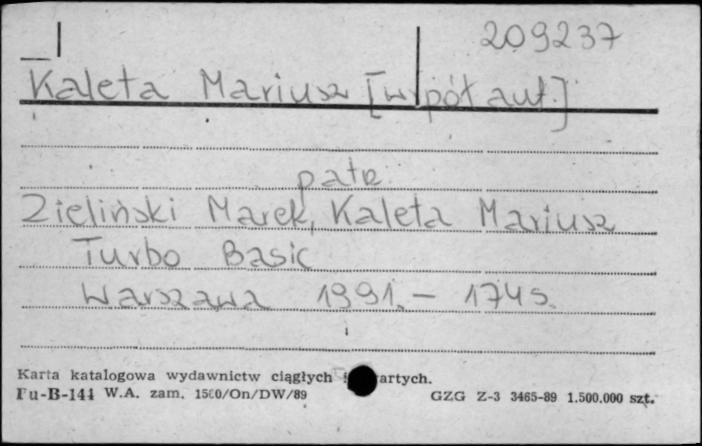 209237
Kaleta Mariusz [współaut.]
patrz
Zieliński Marek, Kaleta Mariusz
Turbo Basic
Warszawa 1991. - 174 s.
Karta katalogowa wydawnictw ciągłych i zwartych.
Pu-B-144 W.A. zam. 1560/On/DW/89 GZG Z-3 3465-89 1.500.000 szt.